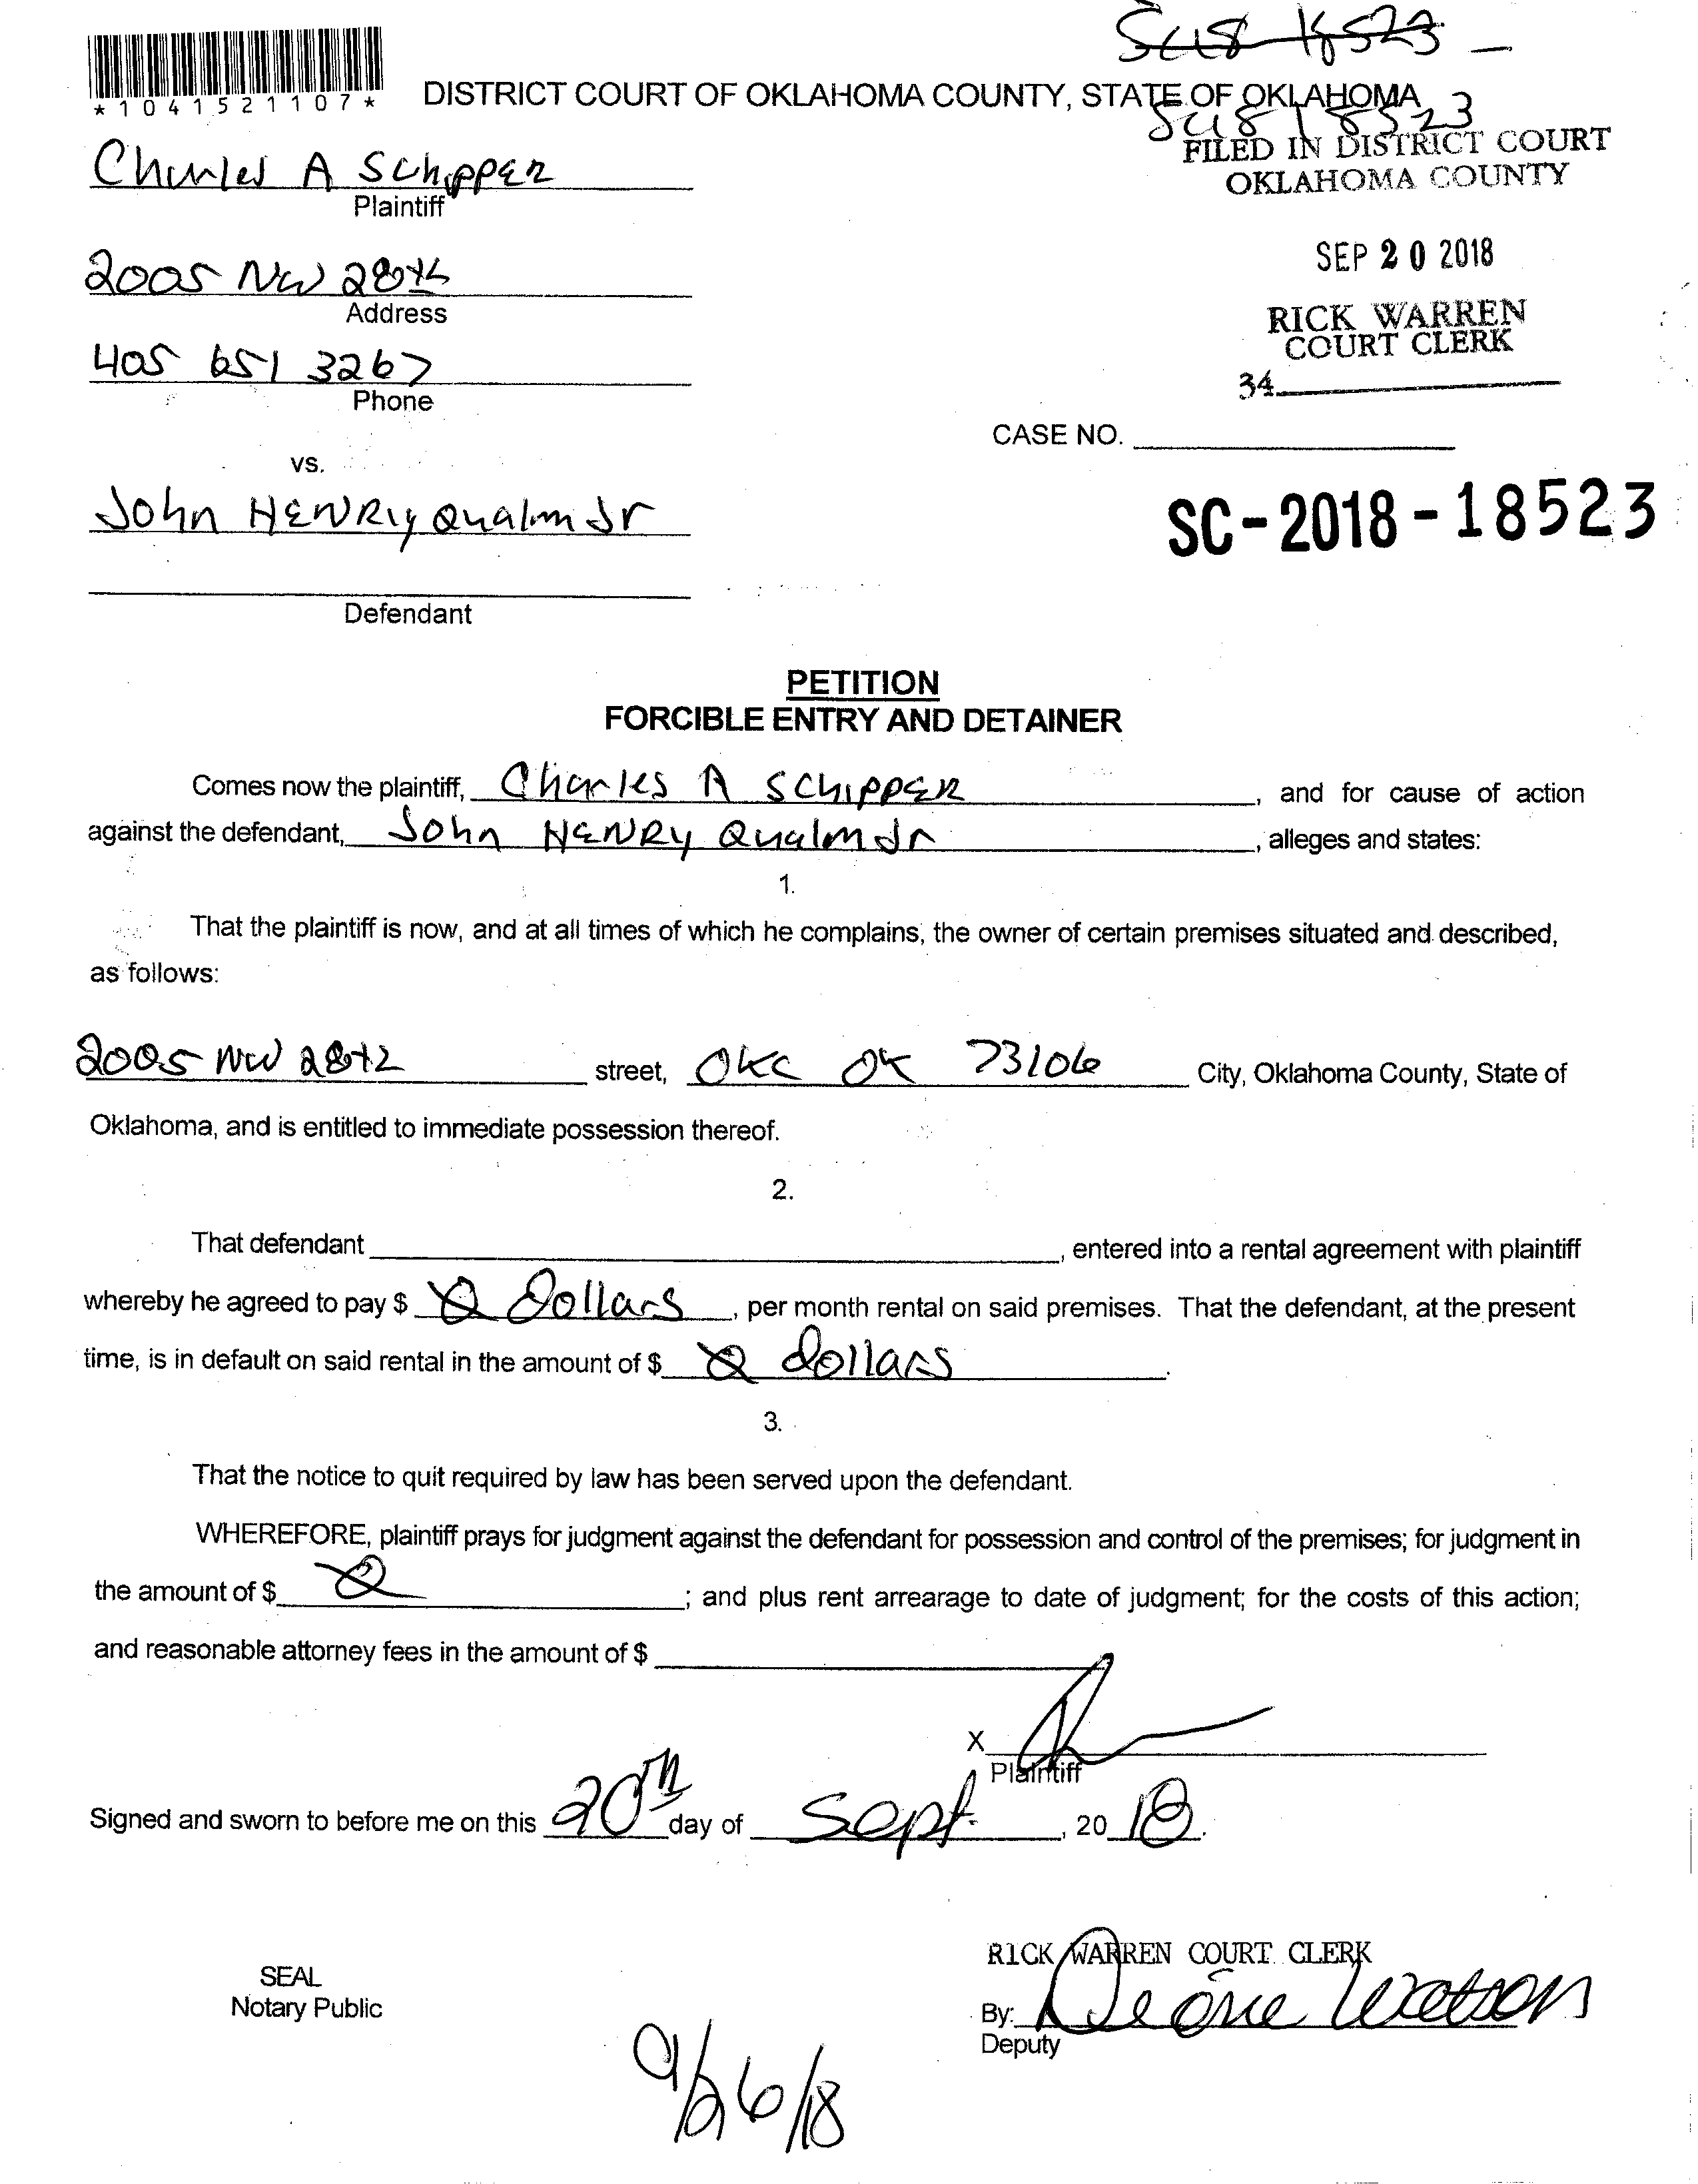 SC18 18523 -
*1041521107*
DISTRICT COURT OF OKLAHOMA COUNTY, STATE OF OKLAHOMA
SC18 18523
FILED IN DISTRICT COURT
OKLAHOMA COUNTY
Charles A SCHIPPER
Plaintiff
SEP 20 2018
2005 NW 28th
Address
RICK WARREN
COURT CLERK
405 651 3267
Phone
34
CASE NO.
vs.
John HENRY Qualm Jr
SC-2018-18523
Defendant
PETITION
FORCIBLE ENTRY AND DETAINER
Comes now the plaintiff, Charles A SCHIPPER, and for cause of action
against the defendant, John HENRY Qualm Jr, alleges and states:
1.
That the plaintiff is now, and at all times of which he complains, the owner of certain premises situated and described,
as follows:
2005 NW 28th street, OKC OK 73106 City, Oklahoma County, State of
Oklahoma, and is entitled to immediate possession thereof.
2.
That defendant, entered into a rental agreement with plaintiff
whereby he agreed to pay $ 0 Dollars, per month rental on said premises. That the defendant, at the present
time, is in default on said rental in the amount of $ 0 dollars.
3.
That the notice to quit required by law has been served upon the defendant.
WHEREFORE, plaintiff prays for judgment against the defendant for possession and control of the premises; for judgment in
the amount of $ 0; and plus rent arrearage to date of judgment; for the costs of this action;
and reasonable attorney fees in the amount of $
X
Plaintiff
Signed and sworn to before me on this 20th day of Sept., 2018.
RICK WARREN COURT CLERK
SEAL
Notary Public
By: Watson
Deputy
9/26/18